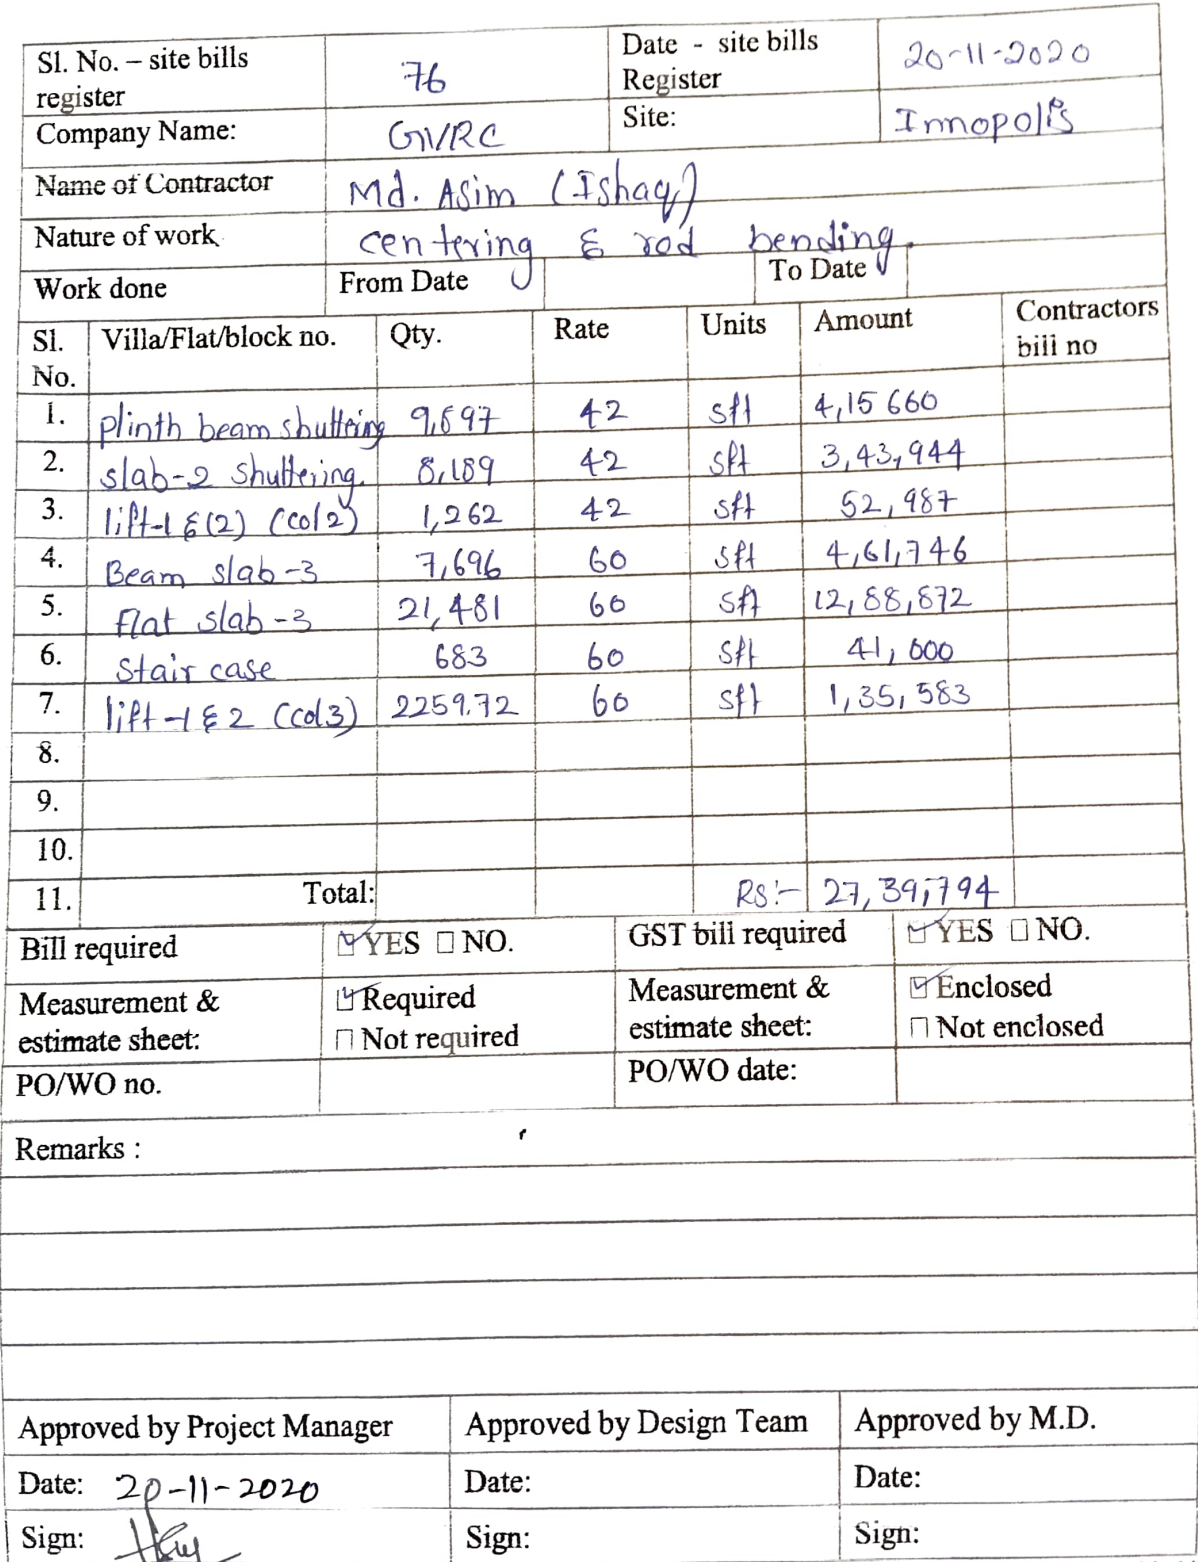 Sl. No. – site bills register 76 Date - site bills Register 20-11-2020
Company Name: GVRC Site: Innopolis
Name of Contractor Md. Asim (Ishaq)
Nature of work centering & rod bending.
Work done From Date To Date
Sl. No. Villa/Flat/block no. Qty. Rate Units Amount Contractors bill no
1. plinth beam shuttering 9,897 42 sft 4,15 660
2. slab-2 shuttering. 8,189 42 sft 3,43,944
3. lift-1 & (2) (col 2) 1,262 42 sft 52,987
4. Beam slab-3 7,696 60 sft 4,61,746
5. Flat slab-3 21,481 60 sft 12,88,872
6. Stair case 683 60 sft 41,000
7. lift-1 & 2 (col3) 2259.72 60 sft 1,35,583
8.
9.
10.
11. Total: Rs:- 27,39,794
Bill required ☑ YES ☐ NO. GST bill required ☑ YES ☐ NO.
Measurement & estimate sheet: ☑ Required ☐ Not required Measurement & estimate sheet: ☑ Enclosed ☐ Not enclosed
PO/WO no. PO/WO date:
Remarks :
Approved by Project Manager Approved by Design Team Approved by M.D.
Date: 20-11-2020 Date: Date:
Sign: Sign: Sign: